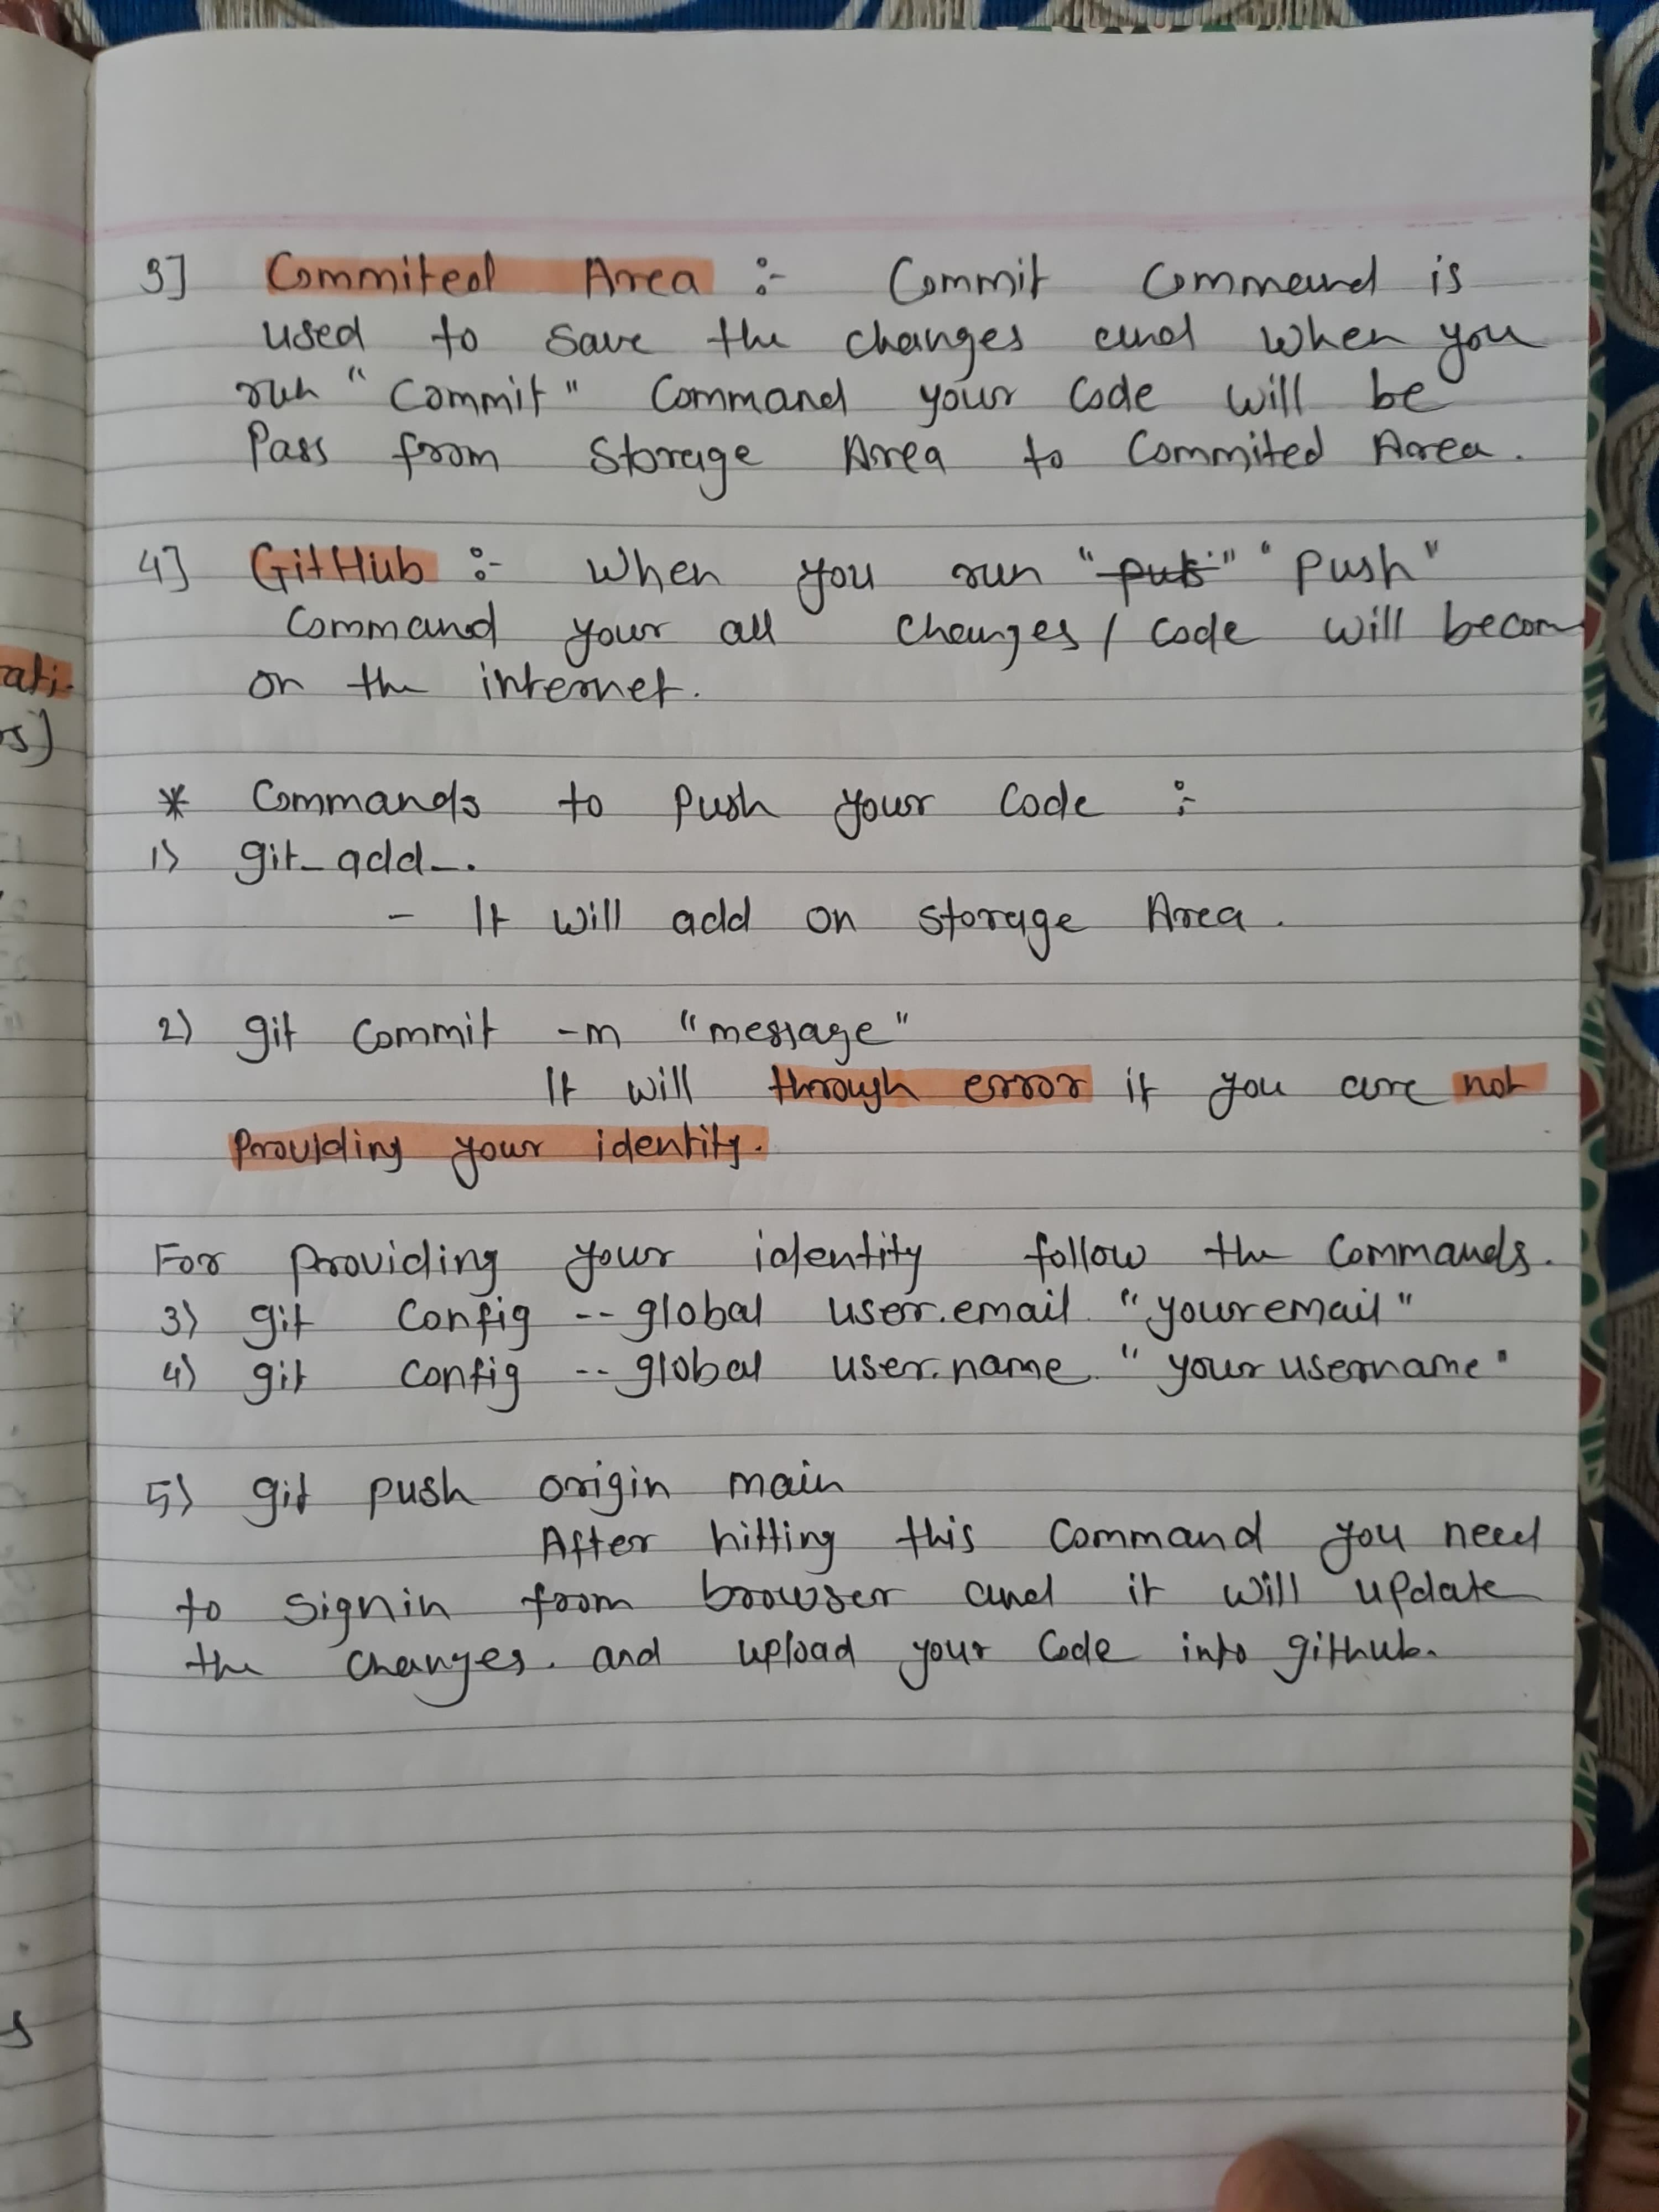 3] Commited Area :- Commit Command is
used to save the changes and when you
run "Commit" Command your Code will be
Pass from Storage Area to Commited Area.
4] GitHub :- When you run "put" "Push"
Command your all changes / code will becom
on the internet.
* Commands to Push your Code :-
1) git_add_.
- It will add on storage Area.
2) git commit -m "message"
It will through error if you are not
Providing your identity.
For Providing your identity follow the Commands.
3) git Config --global user.email "your email"
4) git config --global user.name "your username"
5) git push origin main
After hitting this Command you need
to signin from browser and it will update
the changes. and upload your Code into github.
ati-
s)
s